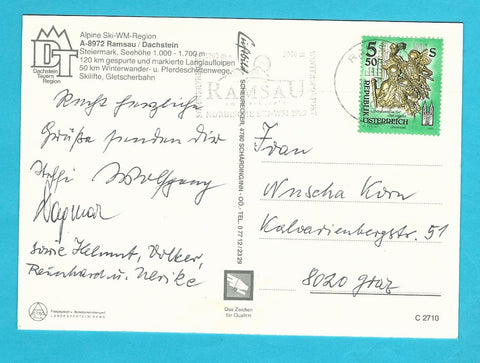 Alpine Ski-WM-Region
A-8972 Ramsau / Dachstein
Steiermark, Seehöhe 1.000 - 1.700 m
120 km gespurte und markierte Langlaufloipen
50 km Winterwander- u. Pferdeschlittenwege,
Skilifte, Gletscherbahn
DT
Dachstein
Tauern
Region
Recht herzliche
Grüße senden dir
Steffi Wolfgang
Dagmar
sowie Helmut, Volker,
Reinhard u. Ulrike
SCHEURECKER, 4780 SCHÄRDING/INN - OÖ. - TEL. 0 77 12/23 29
RAMSAU
5 50 S
REPUBLIK
ÖSTERREICH
Frau
Nuscha Korn
Kalvarienbergstr. 51
8020 Graz
Das Zeichen
für Qualität
C 2710